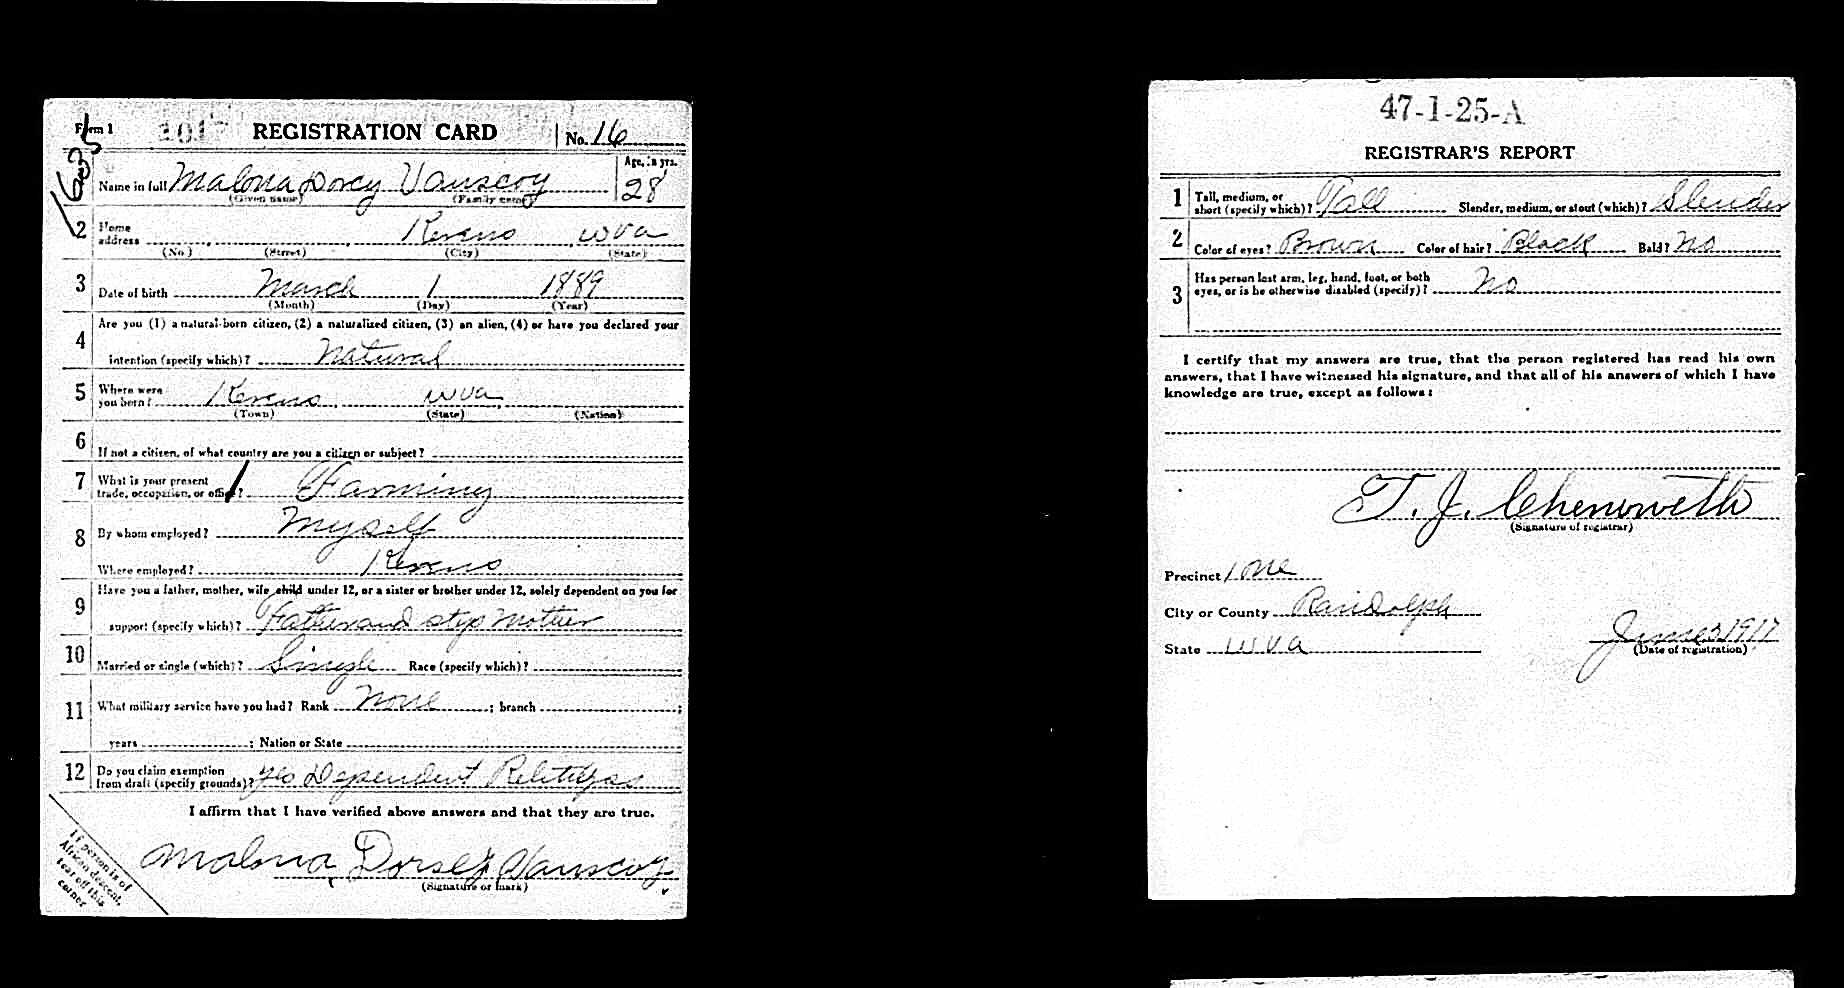 1635
Form 1 REGISTRATION CARD No. 16
Name in full Malona Dorcy Vanscoy Age, in yrs. 28
(Given name) (Family name)
2 Home address Kerens W Va
(No.) (Street) (City) (State)
3 Date of birth March 1 1889
(Month) (Day) (Year)
4 Are you (1) a natural-born citizen, (2) a naturalized citizen, (3) an alien, (4) or have you declared your
intention (specify which)? Natural
5 Where were you born? Kerens W Va
(Town) (State) (Nation)
6 If not a citizen, of what country are you a citizen or subject?
7 What is your present trade, occupation, or office? Farming
8 By whom employed? Myself
Where employed? Kerens
9 Have you a father, mother, wife child under 12, or a sister or brother under 12, solely dependent on you for
support (specify which)? Father and step Mother
10 Married or single (which)? Single Race (specify which)?
11 What military service have you had? Rank None ; branch ;
years ; Nation or State
12 Do you claim exemption from draft (specify grounds)? yes Dependent
I affirm that I have verified above answers and that they are true.
Malona Dorsey Vanscoy
(Signature or mark)
If person is of
African descent,
tear off this
corner
47-1-25-A
REGISTRAR'S REPORT
1 Tall, medium, or short (specify which)? Tall Slender, medium, or stout (which)? Slender
2 Color of eyes? Brown Color of hair? Black Bald? No
3 Has person lost arm, leg, hand, foot, or both
eyes, or is he otherwise disabled (specify)? No
I certify that my answers are true, that the person registered has read his own
answers, that I have witnessed his signature, and that all of his answers of which I have
knowledge are true, except as follows:
T. J. Chenoweth
(Signature of registrar)
Precinct one
City or County Randolph
State W Va
June 1917
(Date of registration)